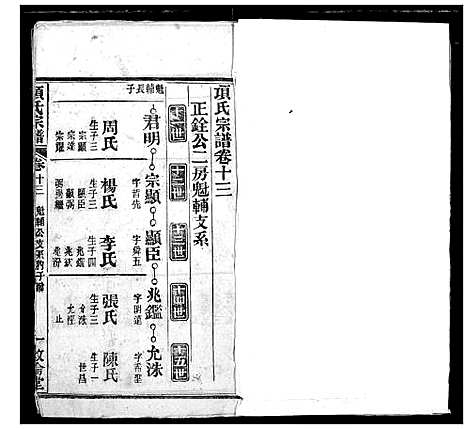 項氏宗譜卷十三
正銓公二房魁輔支系
十一世
十二世
十三世
十四世
十五世
魁輔長子
君明
宗顯
顯臣
兆鑑
允洙
字哲先
字舜五
字明遠
周氏
生子三
宗顯
宗達
宗耀
楊氏
生子三
顯臣
顯弼
李氏
生子四
兆鑑
張氏
生子三
允洙
止
陳氏
生子一
世昌
項氏宗譜
卷十三
魁輔公支
一